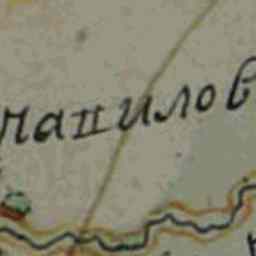 чапилов